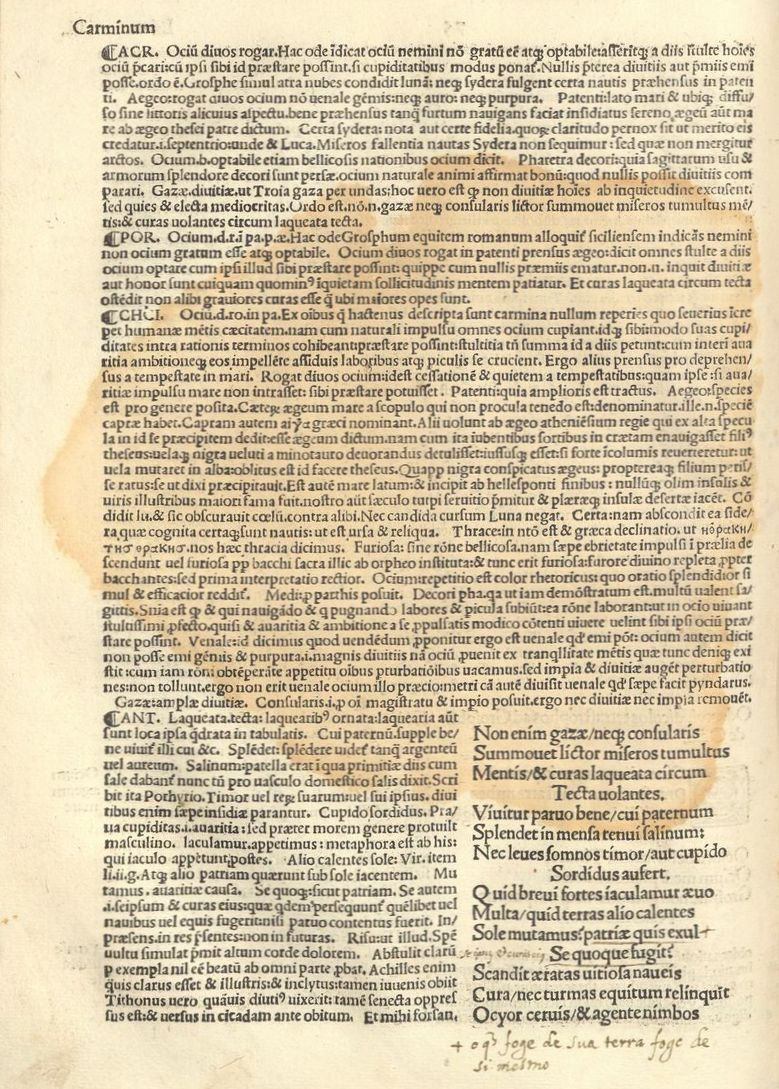 Carminum
ACR. Ociū diuos rogar. Hac ode īdicat ociū nemini nō gratū eē atq; optabile: asserītq; a diis stulte hoīes
ociū p̄cari: cū ipsi sibi id præstare possint. si cupiditatibus modus ponat᷑. Nullis p̄terea diuitiis aut p̄miis emi
posse. ordo ē. Grosphe simul atra nubes condidit lunā: neq; sydera fulgent certa nautis præhensus in paten
ti. Aegeo: rogat diuos ocium nō uenale gēmis: neq; auro: neq; purpura. Patenti: lato mari & ubiq; diffu/
so sine littoris alicuius aspectu. bene præhensus tanq̄ furtum nauigans faciat insidiatus sereno. ægeū aūt ma
re ab ægeo thesei patre dictum. Certa sydera: nota aut certe fidelia. quoꝝ claritudo pernox sit ut merito eis
credatur. i. septentrio: unde & Luca. Miseros fallentia nautas Sydera non sequimur: sed quæ non mergitur
arctos. Ocium. b. optabile etiam bellicosis nationibus ocium dicit. Pharetra decori: quia sagittarum usu &
armorum splendore decori sunt persæ. ocium naturale animi affirmat bonū: quod nullis possit diuitiis com
parari. Gazæ. diuitiæ. ut Troia gaza per undas: hoc uero est ꝙ non diuitiæ hoīes ab inquietudine excusent.
sed quies & electa mediocritas. Ordo est. nō. n. gazæ neq; consularis lictor summouet miseros tumultus mē/
tis: & curas uolantes circum laqueata tecta.
POR. Ocium. d. r. ī pa. p. æ. Hac ode Grosphum equitem romanum alloquit᷑ siciliensem īndicās nemini
non ocium gratum esse atq; optabile. Ocium diuos rogat in patenti prensus ægeo: dicit omnes stulte a diis
ocium optare cum ipsi illud sibi præstare possint: quippe cum nullis præmiis ematur. non. n. inquit diuitiæ
aut honor sunt cuiquam quomin⁹ īquietam sollicitudinis mentem patiatur. Et curas laqueata circum tecta
ostēdit non alibi grauiores curas esse q̄ ubi maiores opes sunt.
CHRI. Ociū. d. ro. in pa. Ex oībus q̄ hactenus descripta sunt carmina nullum reperies quo seuerius īcre
pet humanæ mētis cæcitatem. nam cum naturali impulsu omnes ocium cupiant. idq; sibimodo suas cupi/
ditates intra rationis terminos cohibeant: præstare possint: stultitia tn̄ summa id a diis petunt: cum interi aua
ritia ambitioneq; eos impellēte assiduis laboribus atq; piculis se crucient. Ergo alius prensus pro deprehen/
sus a tempestate in mari. Rogat diuos ocium: idest cessationē & quietem a tempestatibus: quam ipse: si aua/
ritiæ impulsu mare non intrasset: sibi præstare potuisset. Patenti: quia amplioris est tractus. Aegeo: species
est pro genere posita. Cæteꝝ ægeum mare a scopulo qui non procul a tenedo est: denominatur. ille. n. speciē
capræ habet. Capram autem αἶγα græci nominant. Alii uolunt ab ægeo atheniēsium rege qui ex alta specu
la in id se præcipitem dedit: esse ægeum dictum. nam cum ita iubentibus sortibus in crætam enauigasset fili⁹
theseus: uelaq; nigra ueluti a minotauro deuorandus detulisset: iussusq; esset: si forte īcolumis reuerteretur: ut
uela mutaret in alba: oblitus est id facere theseus. Quapp nigra conspicatus ægeus: proptereaq; filium periis/
se ratus: se ut dixi præcipitauit. Est autē mare latum: & incipit ab hellesponti finibus: nullūq; olim insulis &
uiris illustribus maiori fama fuit. nostro aūt sæculo turpi seruitio p̄mitur & plæræq; insulæ desertæ iacēt. Cō
didit lu. & sic obscurauit cœlū. contra alibi. Nec candida cursum Luna negat. Certa: nam abscondit ea side/
ra. quæ cognita certaq; sunt nautis: ut est ursa & reliqua. Thrace: in ntō est & græca declinatio. ut
nos hæc thracia dicimus. Furiosa: sine rōne bellicosa. nam sæpe ebrietate impulsi ī prælia de
scendunt uel furiosa pp bacchi sacra illic ab orpheo instituta: & tunc erit furiosa: furore diuino repleta ꝓpter
bacchantes: sed prima interpretatio rectior. Ocium: repetitio est color rhetoricus: quo oratio splendidior si
mul & efficacior reddit᷑. Medi: ꝓ parthis posuit. Decori pha. qa ut iam demōstratum est. multū ualent sa/
gittis. Snīa est ꝙ & qui nauigādo & q pugnando labores & picula subiūt: ea rōne laborant: ut in ocio uiuant
stultissimi ꝓfecto. quisi & auaritia & ambitione a se ꝓpulsatis modico cōtenti uiuere uelint sibi ipsi ociū præ/
stare possint. Venale: id dicimus quod uendēdum ꝓponitur ergo est uenale qd' emi pōt: ocium autem dicit
non posse emi gēmis & purpura. i. magnis diuitiis nā ociū ꝓuenit ex tranqllitate mētis quæ tunc deniq; exi
stit: cum iam rōni obtēperāte appetitu oībus pturbatiōibus uacamus. sed impia & diuitiæ augēt perturbatio
nes: non tollunt. ergo non erit uenale ocium illo præcio: metri cā autē diuisit uenale qd' sæpe facit pyndarus.
Gazæ: amplæ diuitiæ. Consularis. i. ꝓ oī magistratu & impio posuit. ergo nec diuitiæ nec impia remouēt.
ANT. Laqueata. tecta: laquearib⁹ ornata: laquearia aūt
sunt loca ipsa q̄drata in tabulatis. Cui paternū. supple be/
ne uiuit᷑ illi cui &c. Splēdet: splēdere uidet᷑ tanq̄ argenteū
uel aureum. Salinum: patella erat ī qua primitiæ diis cum
sale dabant᷑ nunc tn̄ pro uasculo domestico salis dixit. Scri
bit ita Porhyrio. Timor uel reꝝ suarum: uel sui ipsius. diui
tibus enim sæpe insidiæ parantur. Cupido sordidus. Pra/
ua cupiditas. i. auaritia: sed præter morem genere protulit
masculino. Iaculamur. appetimus: metaphora est ab his:
qui iaculo appētunt ꝓostes. Alio calentes sole: Vir. item
li. ii. g. Atq; alio patriam quærunt sub sole iacentem. Mu
tamus. auaritiæ causa. Se quoq;: sicut patriam. Se autem
.i. seipsum & curas eius: quæ qdem persequunt᷑ quēlibet uel
nauibus uel equis fugerit: nisi paruo contentus fuerit. In/
præsens. in res p̄sentes: non in futuras. Risu: ut illud. Spē
uultu simulat p̄mit altum corde dolorem. Abstulit clarū
p exempla nil eē beatū ab omni parte ꝓbat. Achilles enim
q̄uis clarus esset & illustris: & inclytus: tamen iuuenis obiit
Tithonus uero quāuis diuti⁹ uixerit: tamē senecta oppres
sus est: & uersus in citadam ante obitum. Et mihi forsan.
Non enim gazæ/neq; consularis
Summouet lictor miseros tumultus
Mentis/& curas laqueata circum
Tecta uolantes.
Viuitur paruo bene/cui paternum
Splendet in mensa tenui salinum:
Nec leues somnos timor/aut cupido
Sordidus aufert.
Quid breui fortes iaculamur æuo
Multa/quid terras alio calentes
Sole mutamus? patriæ quis exul +
Se quoque fugit?
Scandit æratas uitiosa naueis
Cura/nec turmas equitum relinquit
Ocyor ceruis/& agente nimbos
+ o q̄ foge de sua terra foge de
si mesmo